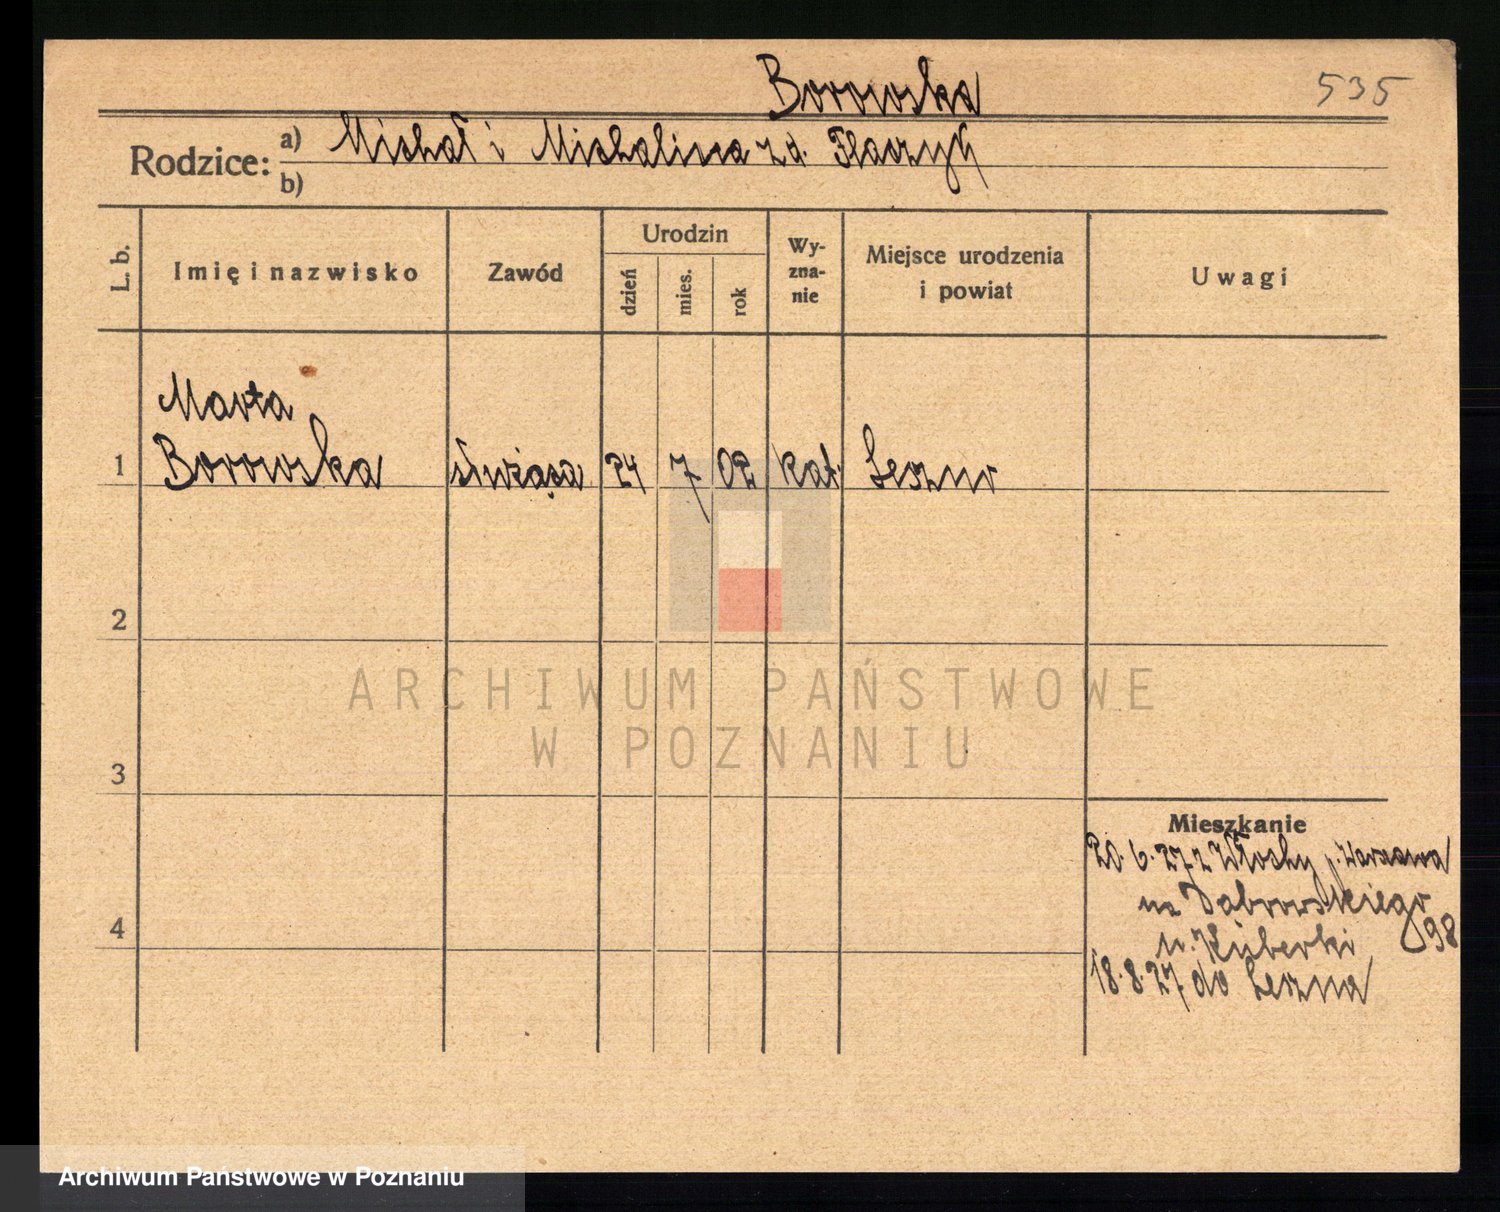 Borowska
535
Rodzice:
a) Michał i Michalina z d. Flaczyk
b)
L. b.
Imię i nazwisko
Zawód
Urodzin
dzień
mies.
rok
Wy-
zna-
nie
Miejsce urodzenia
i powiat
Uwagi
Marta
1 Borowska służąca 24 7 02 kat. Leszno
2
3
4
Mieszkanie
20.6.27 z Włochy p. Warszawa
na Dąbrowskiego
98
u. Kuberki
18.8.27 do Leszna
ARCHIWUM PAŃSTWOWE
W POZNANIU
Archiwum Państwowe w Poznaniu